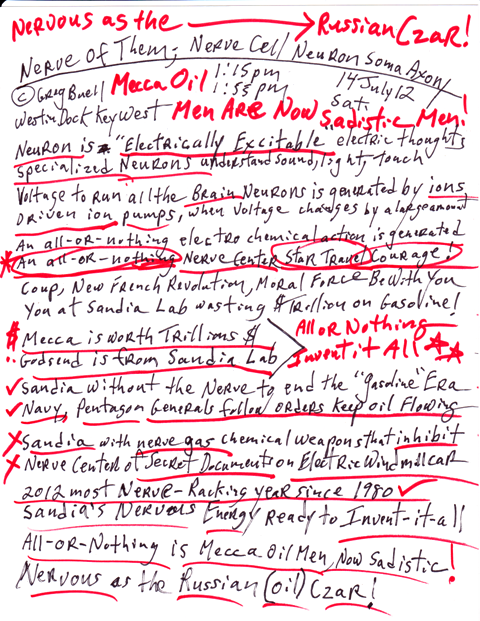 Nervous as the → Russian Czar!
Nerve of Them; Nerve Cell/Neuron Soma Axon/
© Greg Buell Mecca Oil 1:15pm 14 July 12
1:55pm Sat.
Westin Dock Key West Men Are Now Sadistic Men!
Neuron is "Electrically Excitable" electric thoughts
Specialized Neurons understand sound, light, touch
Voltage to run all the Brain Neurons is generated by ions
Driven ion pumps, when voltage changes by a large amount
An all-or-nothing electro chemical action is generated
* An all-or-nothing Nerve Center Star Travel Courage!
Coup, New French Revolution, Moral Force Be With You
You at Sandia Lab wasting $Trillion on Gasoline!
$ Mecca is worth Trillions $ All or Nothing
Godsend is from Sandia Lab Invent it All
✓ Sandia without the Nerve to end the "gasoline" Era
✓ Navy, Pentagon Generals follow orders keep oil Flowing
X Sandia with nerve gas chemical weapons that inhibit
X Nerve Center of Secret Documents on Electric Windmill car
2012 most Nerve-Racking year since 1980 ✓
Sandia's Nervous Energy Ready to Invent-it-all
All-or-Nothing is Mecca Oil Men, Now Sadistic!
Nervous as the Russian (oil) Czar!